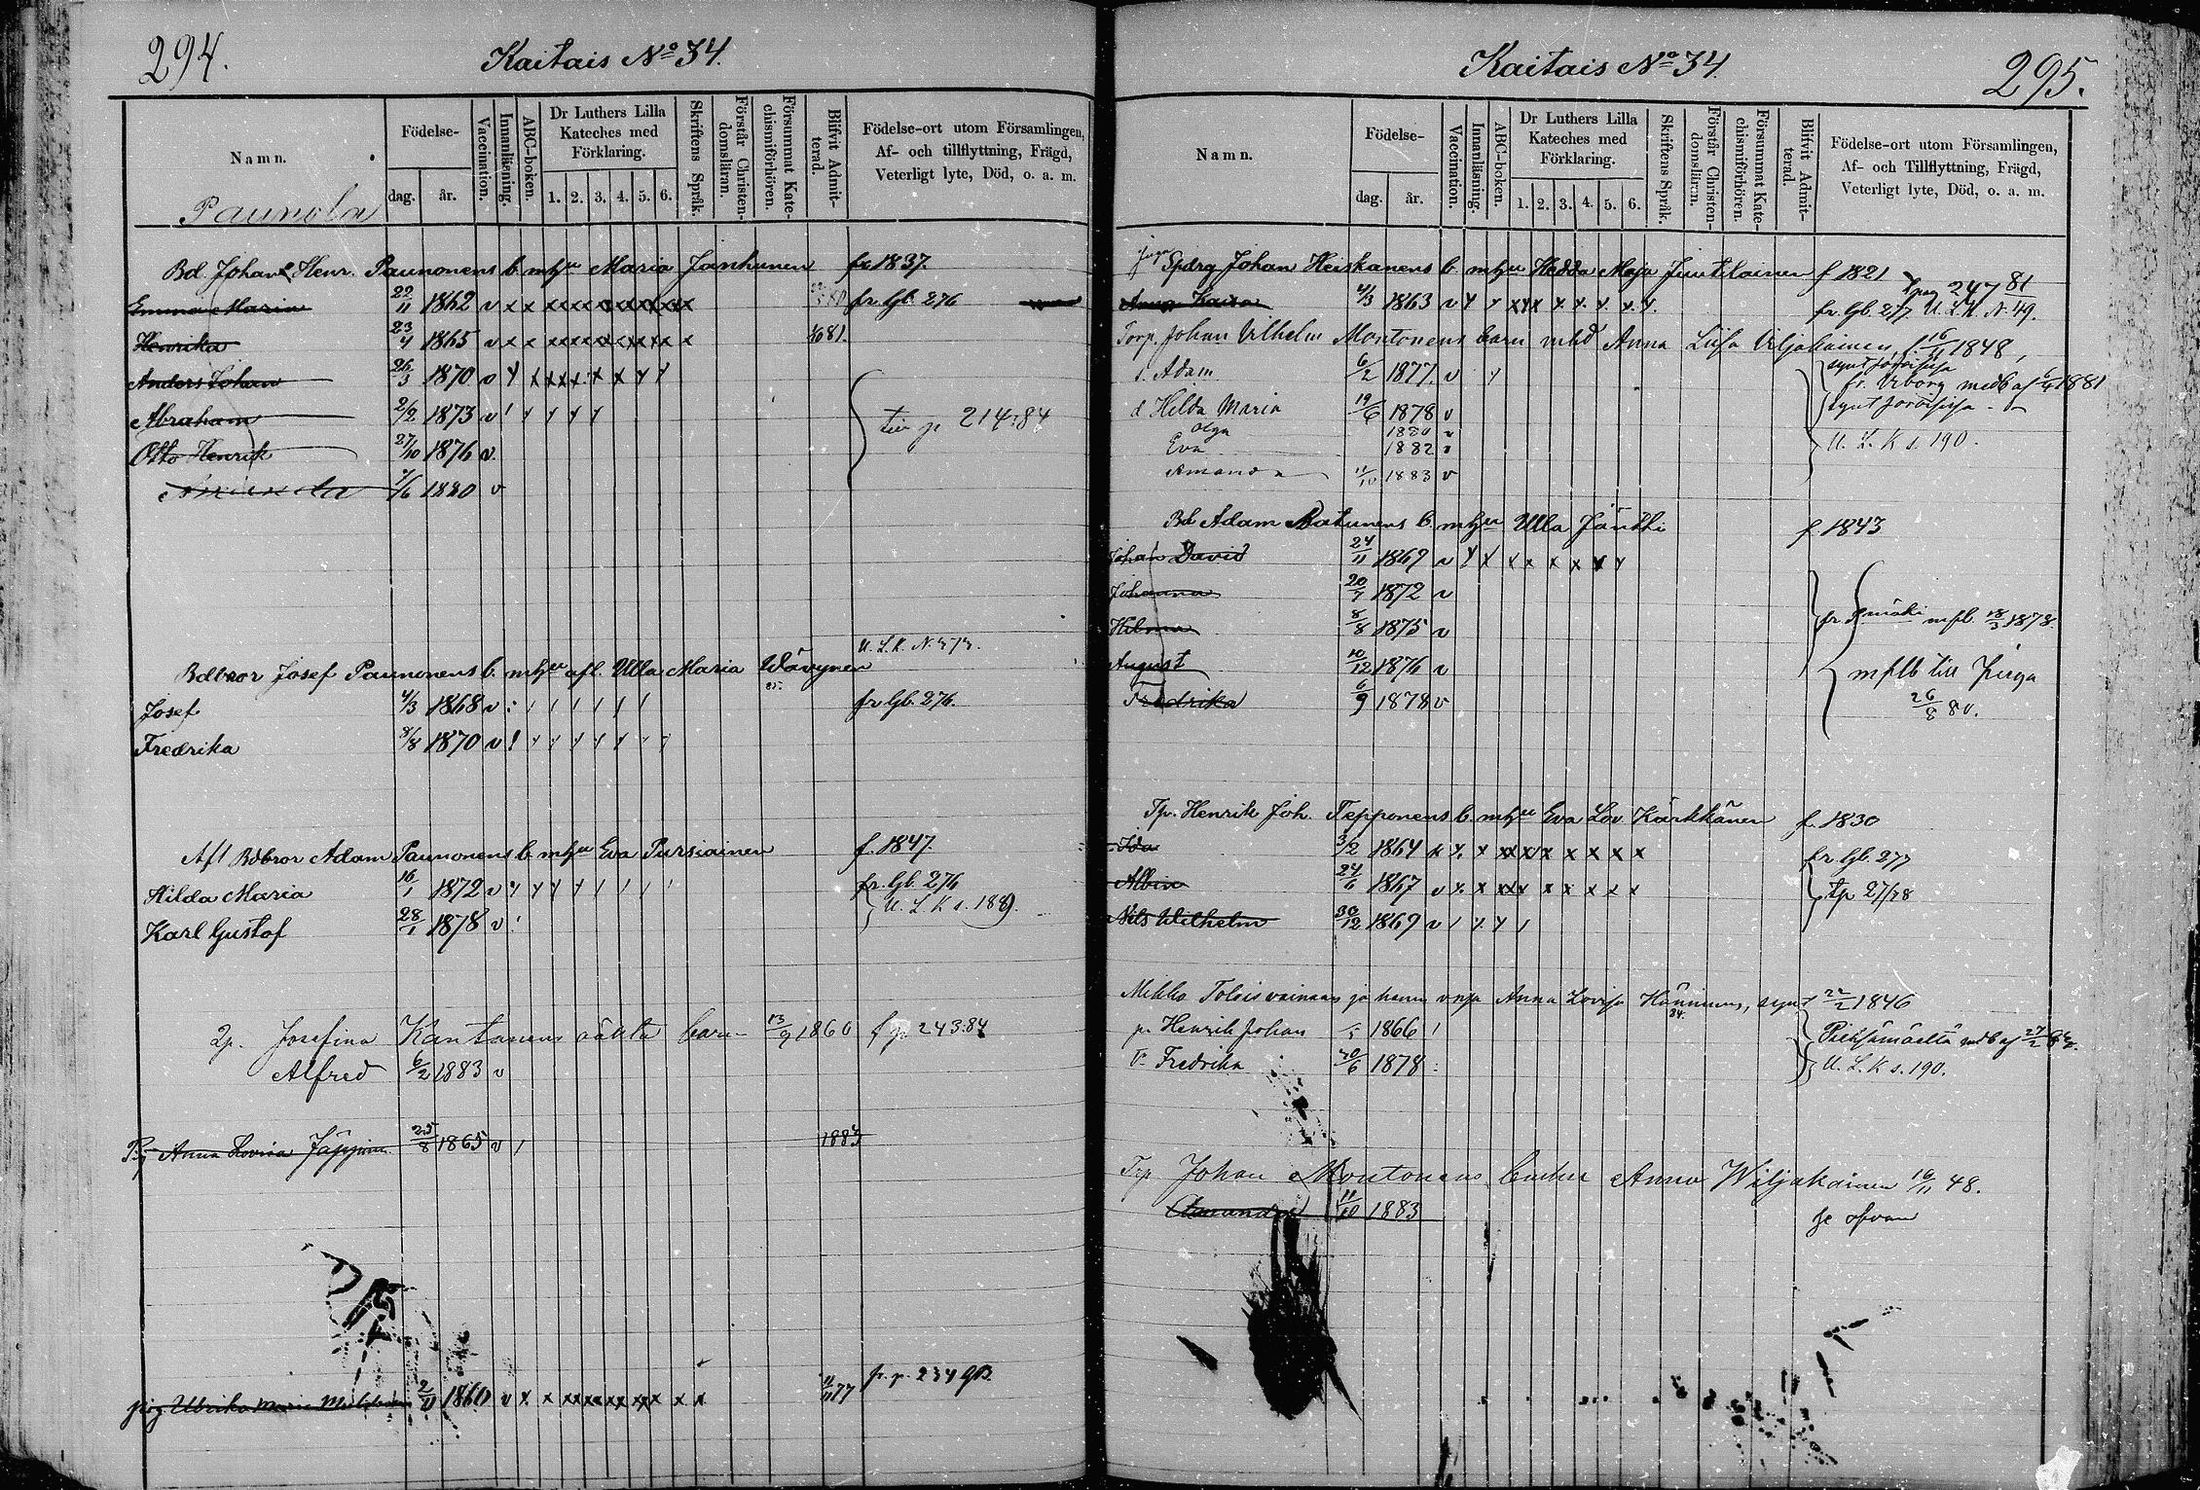 294.
Kaitais No 34.
Namn.
Födelse-
dag.
år.
Vaccination.
Innanläsning.
ABC-boken.
Dr Luthers Lilla Kateches med Förklaring.
1. 2. 3. 4. 5. 6.
Skriftens Språk.
Förstår Christendomsläran.
Försummat Katechismiförhören.
Blifvit Admitterad.
Födelse-ort utom Församlingen,
Af- och tillflyttning, Frägd,
Veterligt lyte, Död, o. a. m.
Paunola
Bd. Johan Henr. Paunonens b. mhu Maria Janhunen f. 1837.
Emma Maria 22/11 1862 v x x x x x x x x x x fr. Gb. 276
Henrika 23/4 1865 v x x x x x x x x x x 81.
Anders Johan 26/3 1870 v
Abraham 2/2 1873 v 214:84
Otto Henrik 27/10 1876 v.
Amanda 7/6 1880 v
U. L. K. N.
Bdbror Josef Paunonens b. mhu afl. Ulla Maria Wäyrynen
Josef 4/3 1868 v fr. Gb. 276.
Fredrika 3/8 1870 v
Afl Bdbror Adam Paunonens b. mhu Eva Pursiainen f. 1847.
Hilda Maria 16/1 1872 v fr. Gb. 276
Karl Gustof 28/1 1878 v U. L. K s. 189.
Josefina Kantanens oäkta barn 13/9 1860 243:84
Alfred 6/2 1883 v
Anna Lovisa Jäppinen 25/8 1865 v 1883
pig Ulrika Maria 1860 v x x 11/11 77 fr. p. 234 GB.
295.
Kaitais No 34.
Namn.
Födelse-
dag.
år.
Vaccination.
Innanläsning.
ABC-boken.
Dr Luthers Lilla Kateches med Förklaring.
1. 2. 3. 4. 5. 6.
Skriftens Språk.
Förstår Christendomsläran.
Försummat Katechismiförhören.
Blifvit Admitterad.
Födelse-ort utom Församlingen,
Af- och Tillflyttning, Frägd,
Veterligt lyte, Död, o. a. m.
Spdrg Johan Heiskanens b. mhu Hedda Maja Juutilainen f 1821
Anna Kaisa 4/3 1863 v 247 81
fr. Gb. 277 U. L. K. N. 49.
Torp. Johan Vilhelm Montonens barn mhd Anna Liisa Viljakainen f 16/11 1848,
s. Adam 6/2 1877. v
fr. Viborg medb af 1881
d Hilda Maria 19/6 1878 v
Olga 1880 v
Eva 1882 U. L. K s. 190.
Amanda 11/10 1883 v
Bd Adam Ratunens b. mhu Ulla Jäntti f 1843
Johan David 24/11 1869 v
Johanna 20/7 1872 v
Hilma 8/8 1875 v mfl. 18/3 1878.
August 10/12 1876 v mflb till Jirga
Fredrika 6/9 1878 v 26/8 80.
Tp. Henrik Joh. Tepponens b. mhu Eva Lov. Kärkkänen f. 1830
Ida 3/2 1864 fr. Gb. 277
Albin 24/6 1867 v tp 27/78
Nils Wilhelm 30/12 1869 v
Mikko Tolsis vainaan ja hanen vnsa Anna Lovisa Hänninens, synt 22/2 1846
84.
p. Henrik Johan 1866 Pieksämäeltä mdb af 27/2
Fredrika 20/6 1878 U. L. K s. 190.
Trp Johan Montonens Anna Wiljakainen 16/11 48.
Amanda 11/10 1883 se ofvan